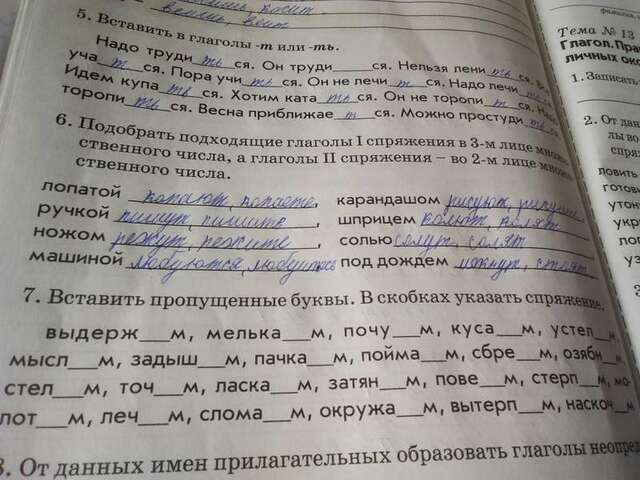 5. Вставить в глаголы -т или -ть.
Надо труди ть ся. Он труди___ся. Нельзя лени ть ся.
уча т ся. Пора учи ть ся. Он не лечи т ся. Надо лечи ть
Идем купа ть ся. Хотим ката ть ся. Он не торопи т ся.
торопи ть ся. Весна приближае т ся. Можно простуди ть ся
6. Подобрать подходящие глаголы I спряжения в 3-м лице множе
ственного числа, а глаголы II спряжения – во 2-м лице множе
ственного числа.
лопатой копают, копаете, карандашом рисуют,
ручкой пишут, пишите, шприцем колют, колят
ножом режут, режите, солью солут, солят
машиной любуются, под дождем мокнут, стоят
7. Вставить пропущенные буквы. В скобках указать спряжение.
выдерж___м, мелька___м, почу___м, куса___м, устел___м,
мысл___м, задыш___м, пачка___м, пойма___м, сбре___м, озябн___м,
стел___м, точ___м, ласка___м, затян___м, пове___м, стерп___м, мо-
лот___м, леч___м, слома___м, окружа___м, вытерп___м, наскоч___м
8. От данных имен прилагательных образовать глаголы неопре
Тема № 13
Глагол. Пра
личных око
1. Записать
2. От дан
лы во
спря
ловить
готови
утону
укр
пол
уз